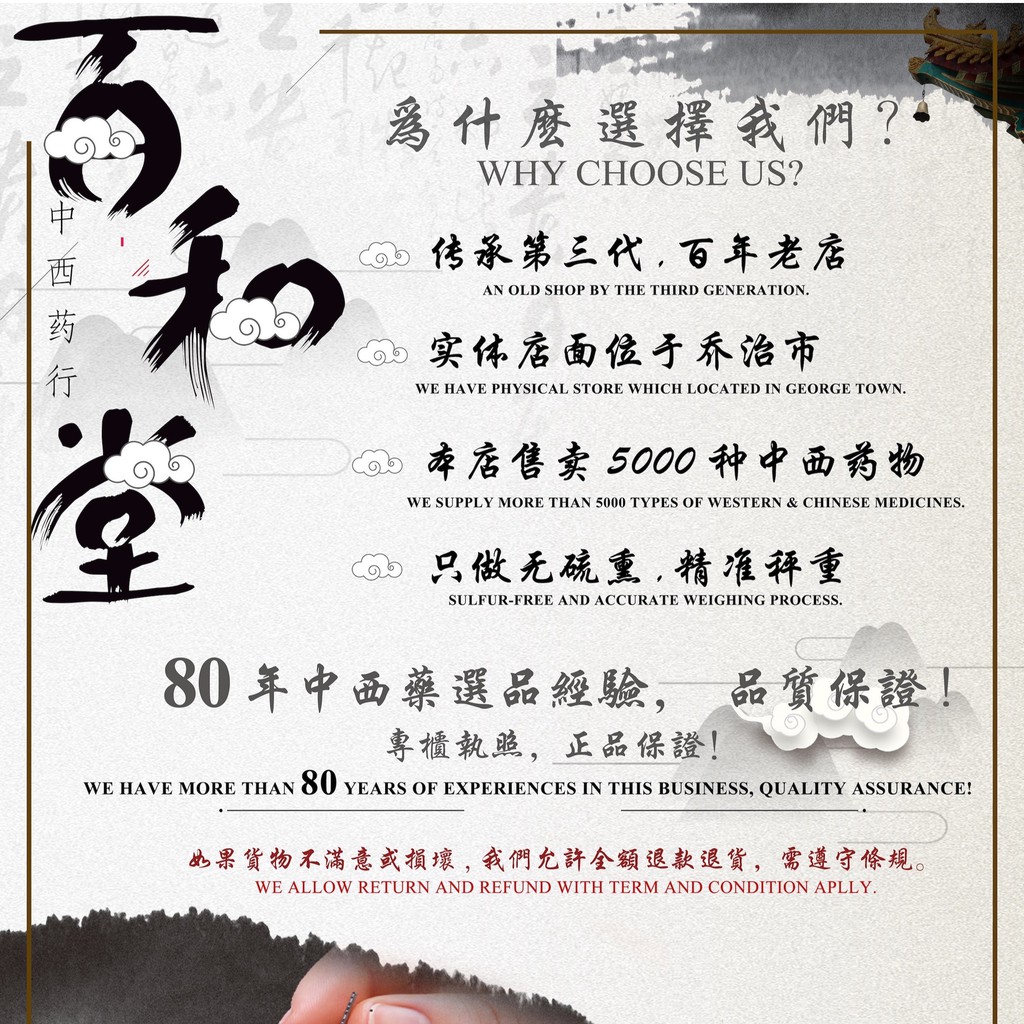 百和堂
中西药行
為什麼選擇我們?
WHY CHOOSE US?
传承第三代,百年老店
AN OLD SHOP BY THE THIRD GENERATION.
实体店面位于乔治市
WE HAVE PHYSICAL STORE WHICH LOCATED IN GEORGE TOWN.
本店售卖 5000 种中西药物
WE SUPPLY MORE THAN 5000 TYPES OF WESTERN & CHINESE MEDICINES.
只做无硫熏,精准秤重
SULFUR-FREE AND ACCURATE WEIGHING PROCESS.
80 年中西藥選品經驗, 品質保證!
專櫃執照, 正品保證!
WE HAVE MORE THAN 80 YEARS OF EXPERIENCES IN THIS BUSINESS, QUALITY ASSURANCE!
如果貨物不滿意或損壞,我們允許全額退款退貨, 需遵守條規。
WE ALLOW RETURN AND REFUND WITH TERM AND CONDITION APLLY.